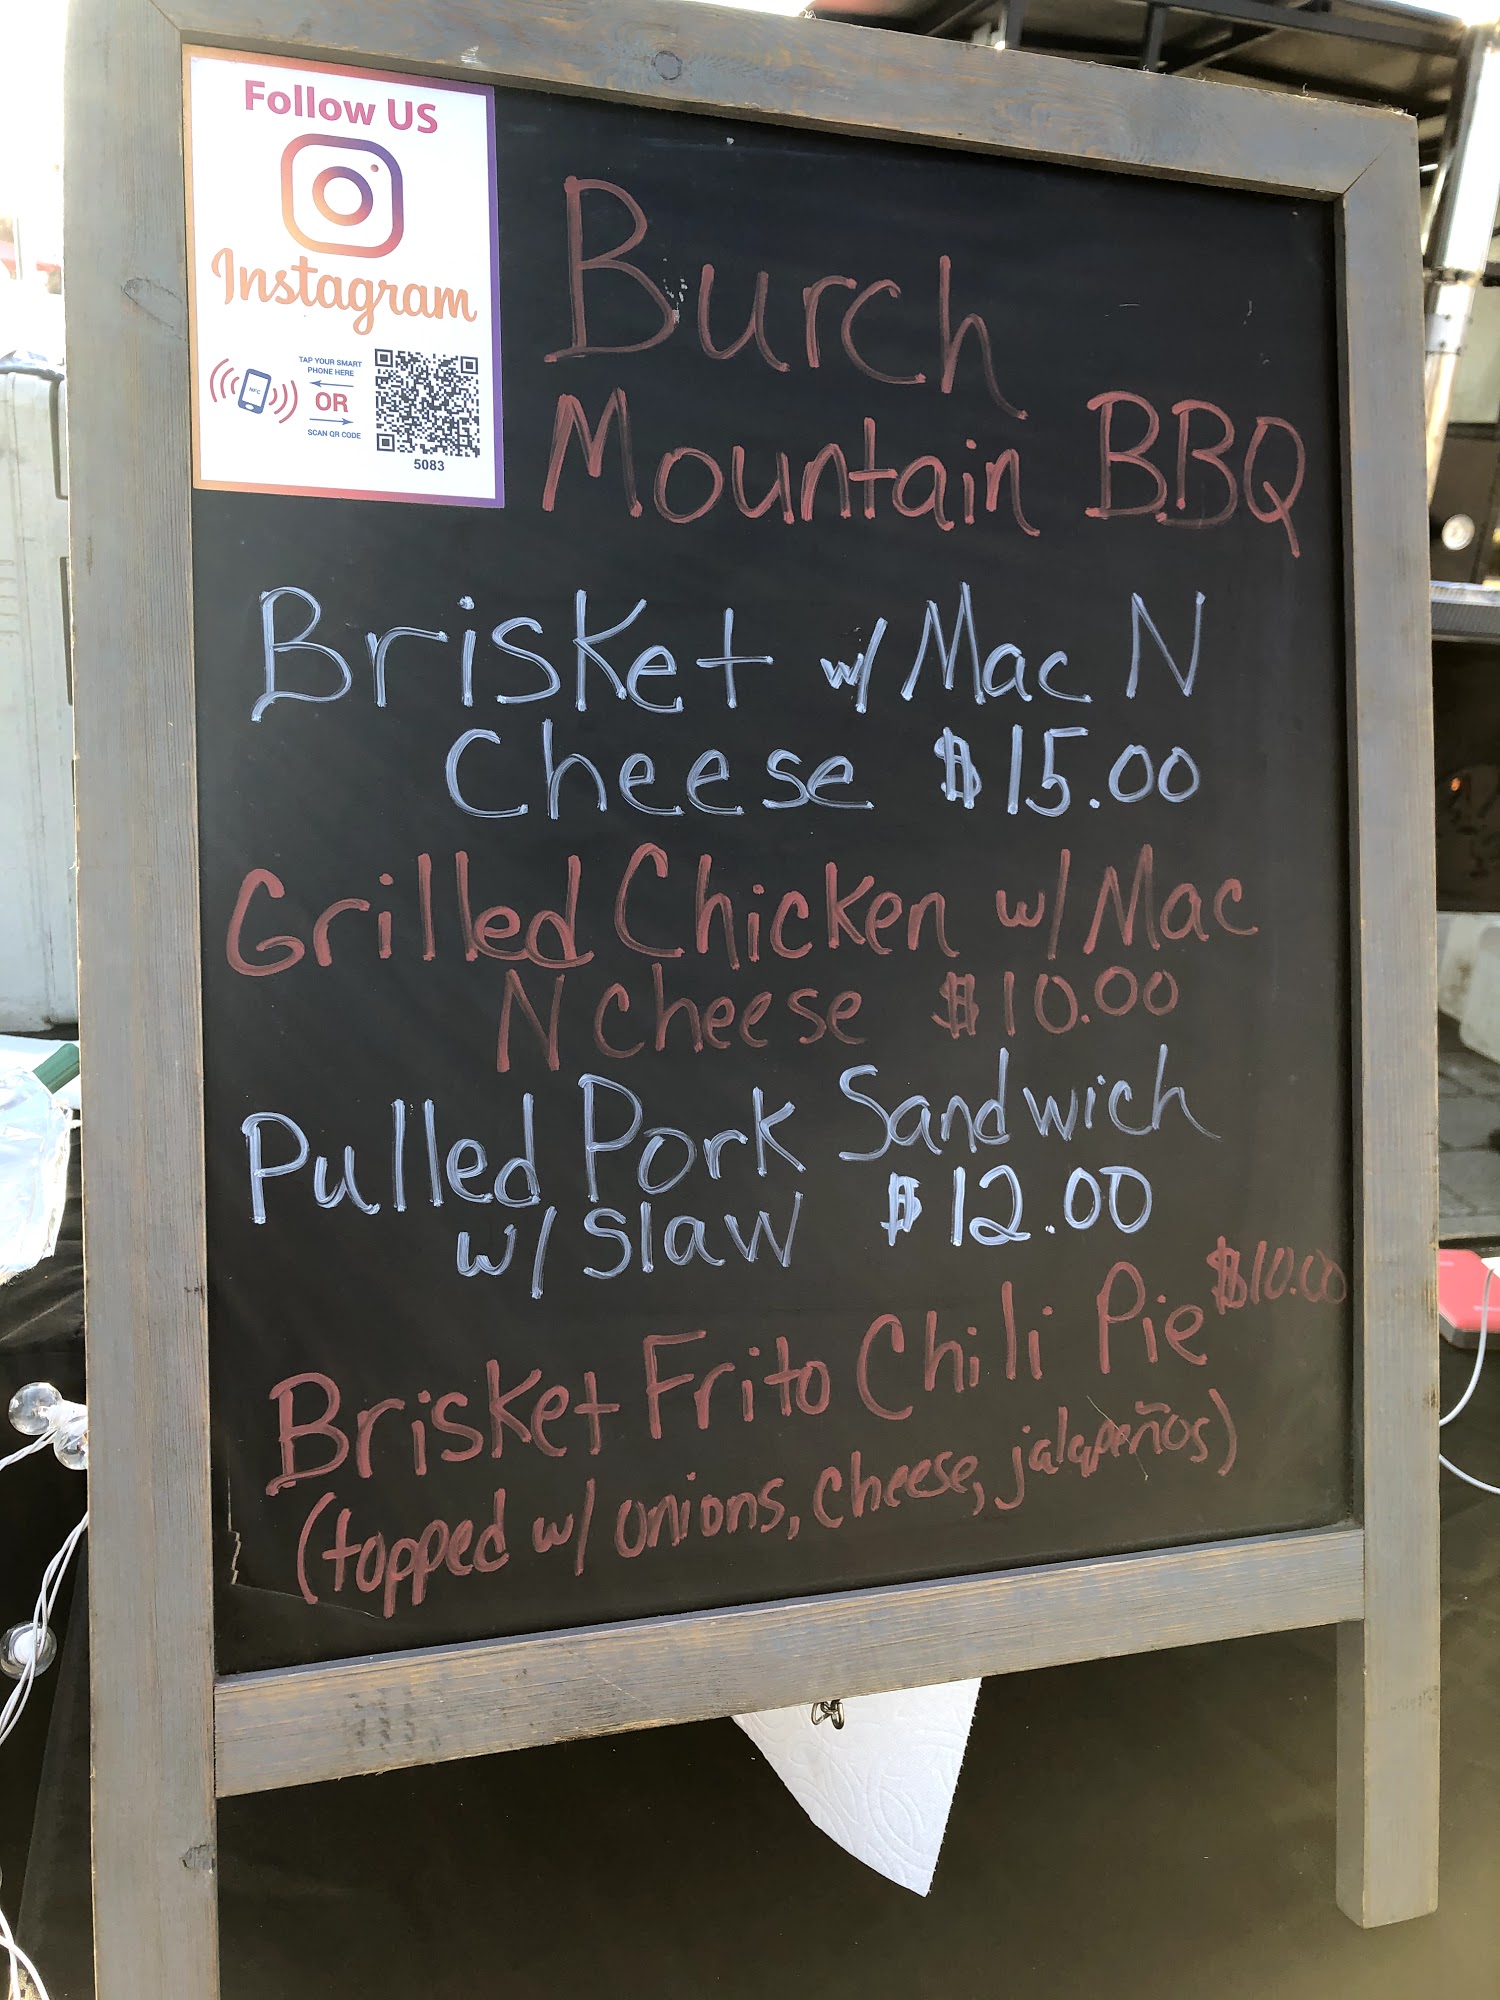 Follow US
Instagram
TAP YOUR SMART
PHONE HERE
NFC
OR
SCAN QR CODE
5083
Burch
Mountain BBQ
Brisket w/ Mac N
Cheese $15.00
Grilled Chicken w/ Mac
N Cheese $10.00
Pulled Pork Sandwich
w/ Slaw $12.00
Brisket Frito Chili Pie $10.00
(topped w/ onions, cheese, jalapeños)